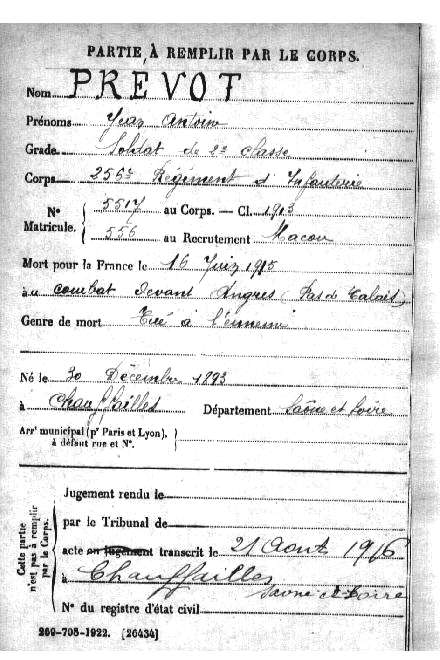 PARTIE À REMPLIR PAR LE CORPS.
Nom PREVOT
Prénoms Jean Antoine
Grade Soldat de 2e classe
Corps 256e Régiment d'Infanterie
N° Matricule. { 5517 au Corps. — Cl. 1913
556 au Recrutement Macon
Mort pour la France le 16 Juin 1915
au combat devant Angres (Pas de Calais)
Genre de mort Tué à l'ennemi
Né le 30 Décembre 1893
à Chauffailles Département Saône et Loire
Arr' municipal (pr Paris et Lyon),
à défaut rue et N°.
Cette partie n'est pas à remplir par le Corps.
Jugement rendu le
par le Tribunal de
acte ou jugement transcrit le 21 Aout 1916
à Chauffailles
Saone-et-Loire
N° du registre d'état civil
269-708-1922. [26434]